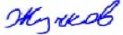 Жучков